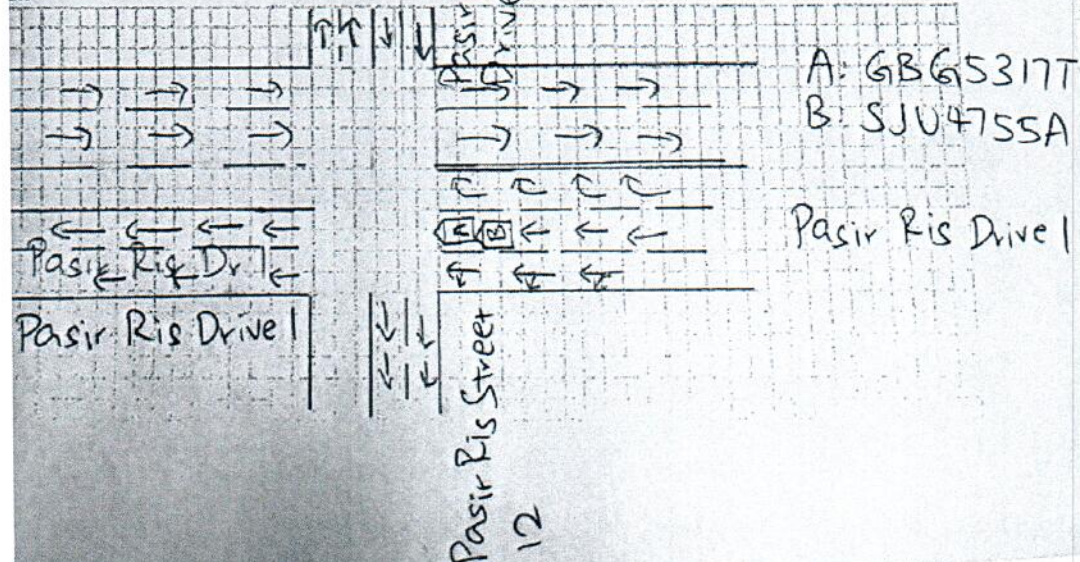 Pasir
Drive
A: GBG5317T
B: SJU4755A
A B
Pasir Ris Drive 1
Pasir Ris Dr 1
Pasir Ris Drive 1
Pasir Ris Street
12